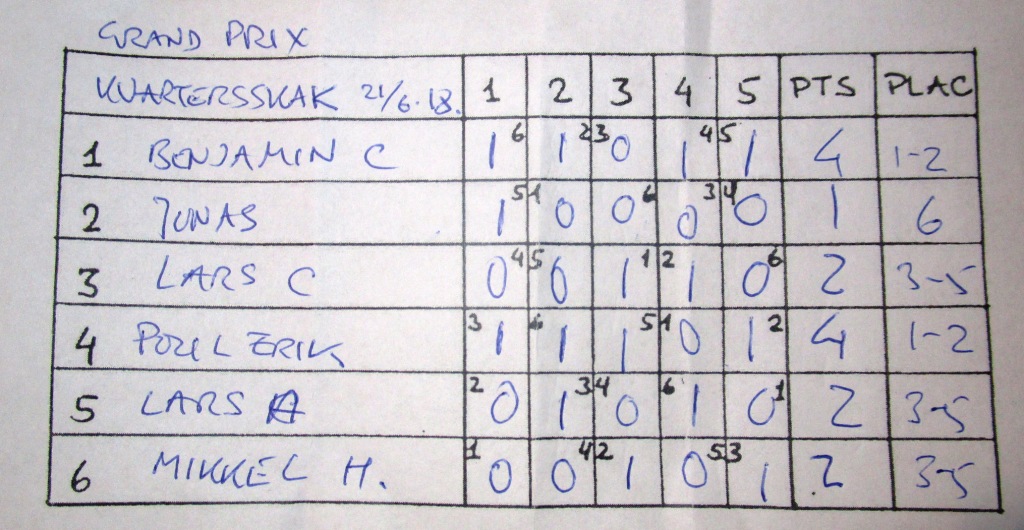 GRAND PRIX
KVARTERSSKAK 21/6.18. 1 2 3 4 5 PTS PLAC
1 BENJAMIN C 1 6 1 2 3 0 1 4 5 1 4 1-2
2 JONAS 1 5 1 0 0 6 0 3 4 0 1 6
3 LARS C 0 4 5 0 1 1 2 1 0 6 2 3-5
4 POUL ERIK 3 1 6 1 1 5 1 0 1 2 4 1-2
5 LARS A 2 0 1 3 4 0 6 1 0 1 2 3-5
6 MIKKEL H. 1 0 0 4 2 1 0 5 3 1 2 3-5